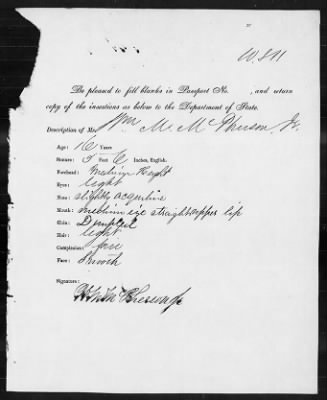 Be pleased to fill blanks in Passport No. , and return
copy of the insertions as below to the Department of State.
Description of Mr. Wm M. McPherson, Jr.
Age: 16 Years
Stature: 5 Feet 6 Inches, English.
Forehead: medium height
Eyes: light
Nose: slightly acquiline
Mouth: medium size straight upper lip
Chin: Dimpled
Hair: light
Complexion: fair
Face: Smooth
Signature:
Wm M McPherson Jr